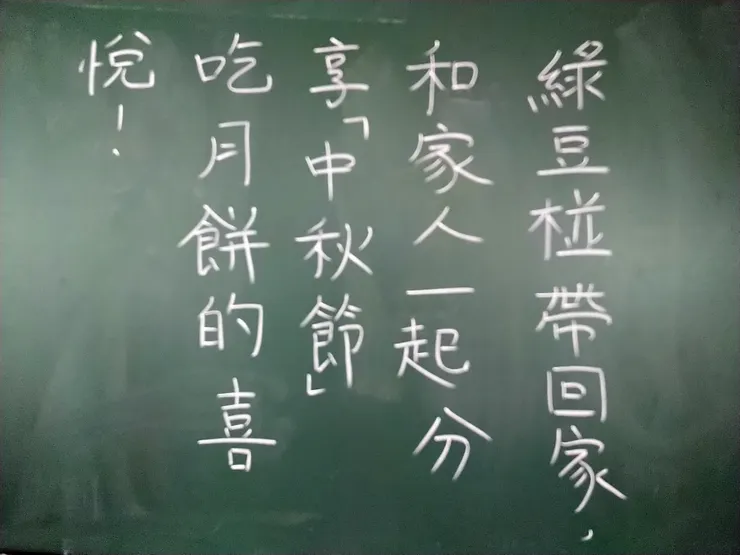 綠豆椪帶回家，
和家人一起分
享「中秋節」
吃月餅的喜
悅！